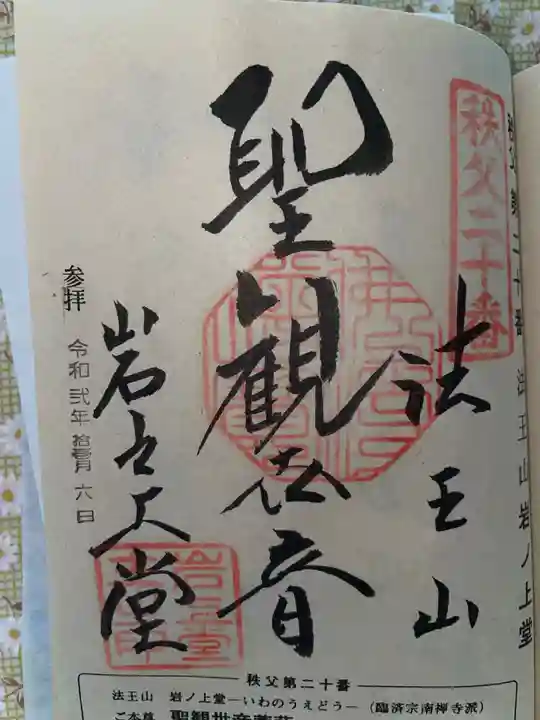 秩父二十番
秩父第二十番 法王山岩ノ上堂
法王山
聖観世音
岩之上堂
参拝 令和弐年拾壱月六日
秩父第二十番
法王山 岩ノ上堂―いわのうえどう―(臨済宗南禅寺派)
ご本尊 聖観世音菩薩